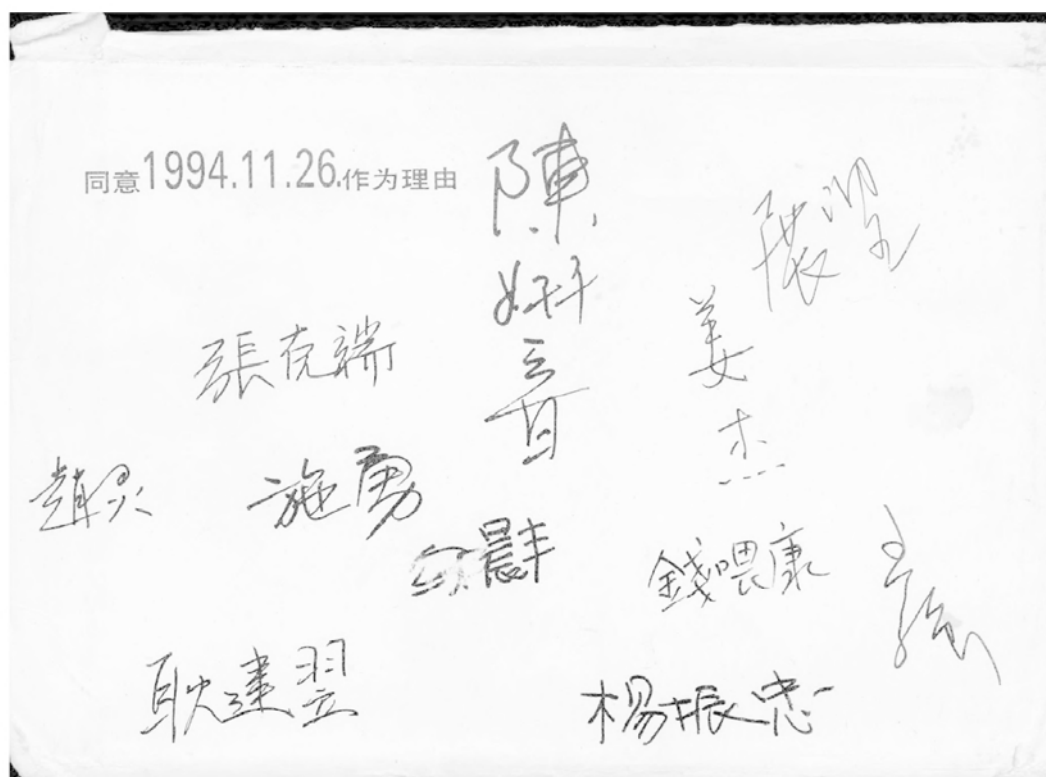 同意1994.11.26.作为理由
陳妍音
張克端
姜杰
施勇
錢喂康
耿建翌
楊振忠